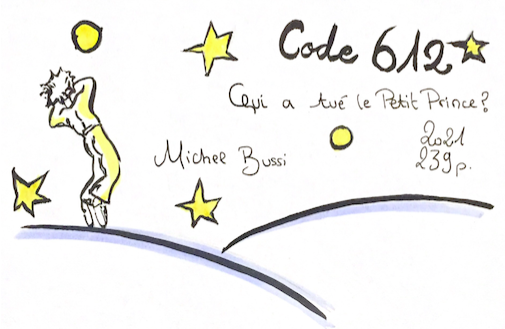 Code 612
Qui a tué le Petit Prince?
Michel Bussi
2021
239p.